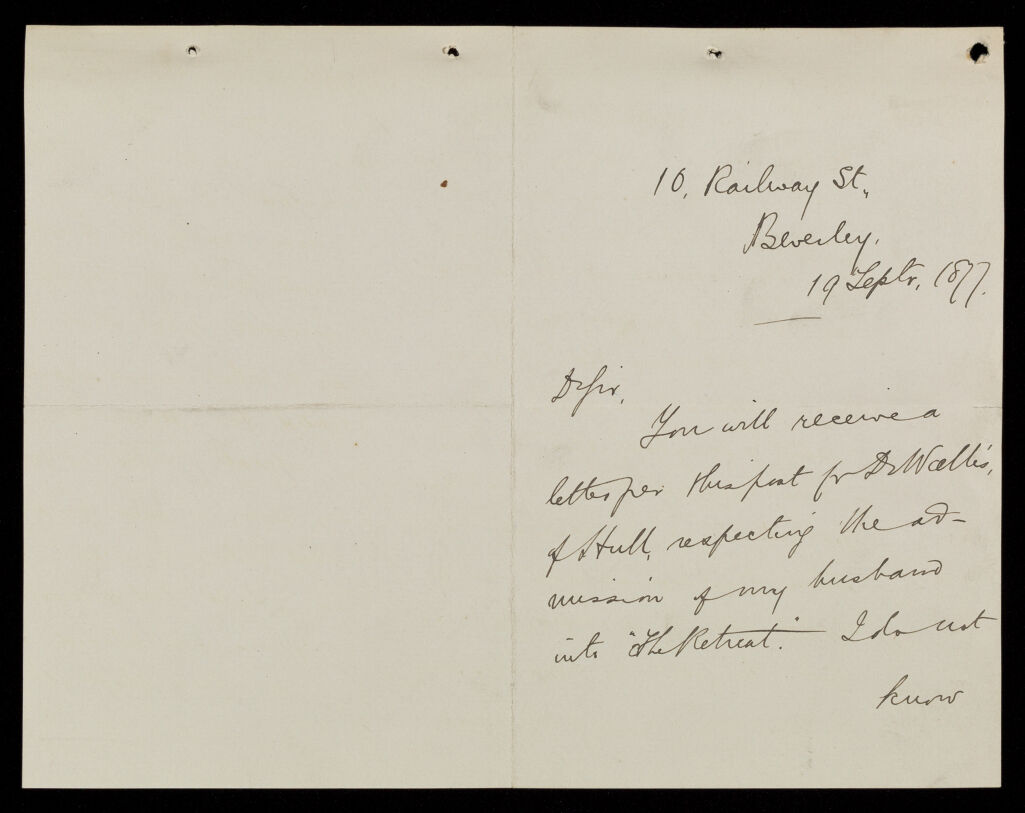 10, Railway St.,
Beverley,
19 Septr, 1877.
Dr Sir,
You will receive a
letter per this post fr Dr Wallis,
of Hull, respecting the ad-
mission of my husband
into "The Retreat." I do not
know